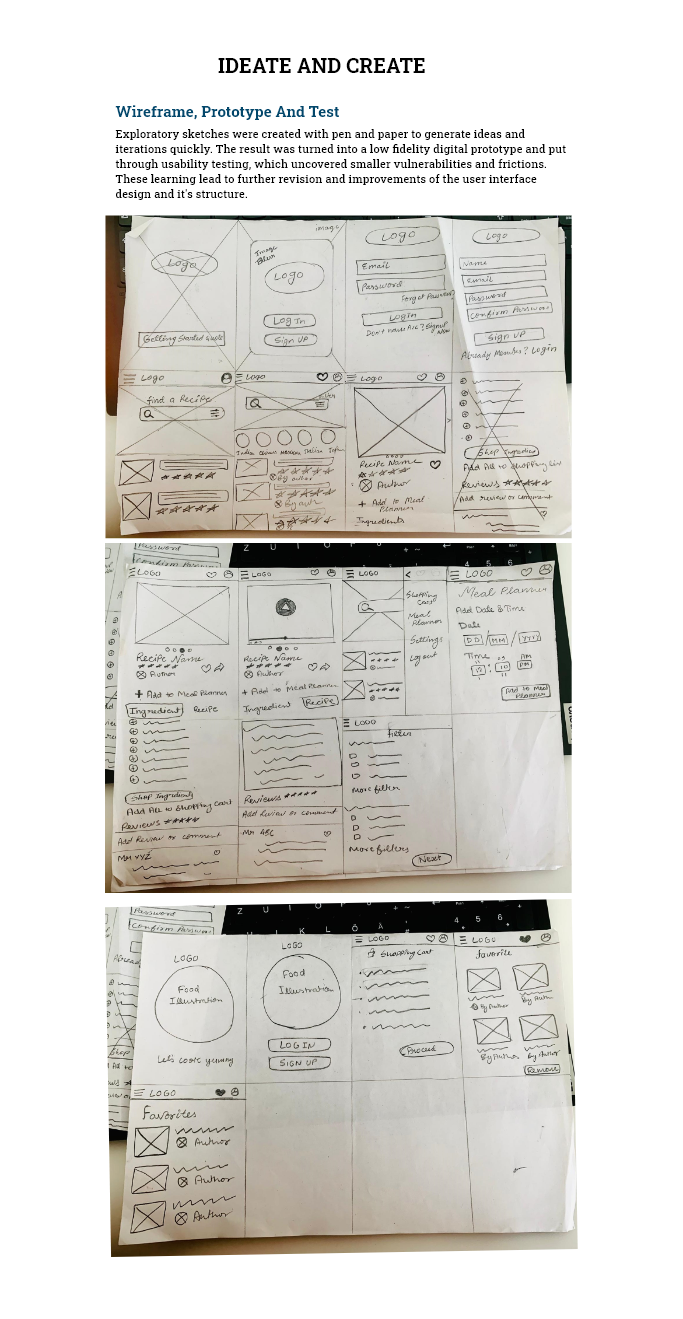 IDEATE AND CREATE
Wireframe, Prototype And Test
Exploratory sketches were created with pen and paper to generate ideas and
iterations quickly. The result was turned into a low fidelity digital prototype and put
through usability testing, which uncovered smaller vulnerabilities and frictions.
These learning lead to further revision and improvements of the user interface
design and it's structure.
Logo
Getting Started
image
Image
Blur
Logo
Log In
Sign UP
Logo
Email
Password
Forgot Password?
Login
Don't have Acc? Signup
Now
Logo
Name
email
Password
Confirm Password
Sign UP
Already Member? Login
Logo
find a Recipe
Logo
Indian
By author
Logo
Recipe Name
Author
+ Add to Meal
Planner
Ingredients
Shop Ingredients
Add All to Shopping List
Reviews
Add review or comment
Password
Confirm Password
Z U I O P
4 5 6
LOGO
Recipe Name
Author
+ Add to Meal Planner
Ingredient Recipe
Shop Ingredients
Add All to Shopping Card
Reviews
Add Review or comment
MM YYZ
LOGO
Recipe Name
Author
+ Add to Meal Planner
Ingredient Recipe
Reviews
Add Review or comment
Mm ABC
LOGO
<
Shopping
Card
Meal
Planner
Settings
Logout
LOGO
filter
More filter
More filters
Next
LOGO
Meal Planner
Add Date & Time
Date
DD / MM / YYYY
Time
AM
PM
Add to Meal
Planner
Password
Confirm Password
Z U I O P
K L Ö Ä
4 5 6
LOGO
Food
Illustration
Lets cook yummy
LOGO
Food
Illustration
LOG IN
SIGN UP
LOGO
Shopping Cart
Proceed
LOGO
favorite
By Author
By Author
By Author
By Author
Remove
LOGO
Favorites
Author
Author
Author